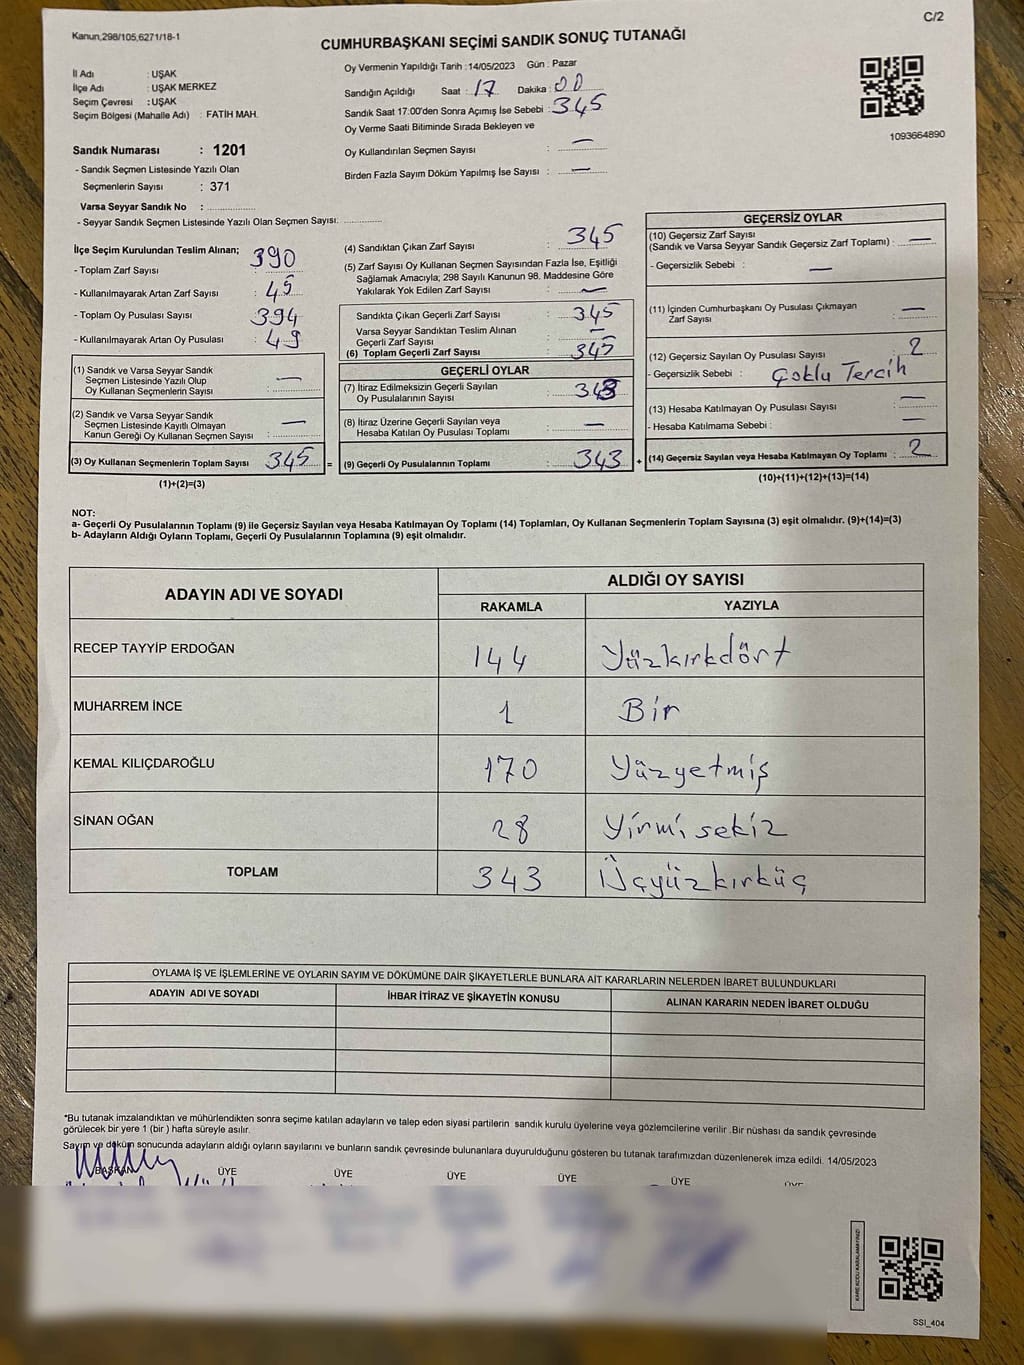 Kanun,298/105,6271/18-1
C/2
CUMHURBAŞKANI SEÇİMİ SANDIK SONUÇ TUTANAĞI
İl Adı : UŞAK
İlçe Adı : UŞAK MERKEZ
Seçim Çevresi : UŞAK
Seçim Bölgesi (Mahalle Adı) : FATİH MAH.
Oy Vermenin Yapıldığı Tarih : 14/05/2023 Gün : Pazar
Sandığın Açıldığı Saat : 17 Dakika : 00
Sandık Saat 17:00'den Sonra Açımış İse Sebebi : 345
Oy Verme Saati Bitiminde Sırada Bekleyen ve
Oy Kullandırılan Seçmen Sayısı : —
Birden Fazla Sayım Döküm Yapılmış İse Sayısı : —
1093664890
Sandık Numarası : 1201
- Sandık Seçmen Listesinde Yazılı Olan
Seçmenlerin Sayısı : 371
Varsa Seyyar Sandık No :
- Seyyar Sandık Seçmen Listesinde Yazılı Olan Seçmen Sayısı:
İlçe Seçim Kurulundan Teslim Alınan;
- Toplam Zarf Sayısı : 390
- Kullanılmayarak Artan Zarf Sayısı : 45
- Toplam Oy Pusulası Sayısı : 394
- Kullanılmayarak Artan Oy Pusulası : 49
(1) Sandık ve Varsa Seyyar Sandık
Seçmen Listesinde Yazılı Olup
Oy Kullanan Seçmenlerin Sayısı : —
(2) Sandık ve Varsa Seyyar Sandık
Seçmen Listesinde Kayıtlı Olmayan
Kanun Gereği Oy Kullanan Seçmen Sayısı : —
(3) Oy Kullanan Seçmenlerin Toplam Sayısı 345 =
(1)+(2)=(3)
(4) Sandıktan Çıkan Zarf Sayısı : 345
(5) Zarf Sayısı Oy Kullanan Seçmen Sayısından Fazla İse, Eşitliği
Sağlamak Amacıyla; 298 Sayılı Kanunun 98. Maddesine Göre
Yakılarak Yok Edilen Zarf Sayısı : —
Sandıkta Çıkan Geçerli Zarf Sayısı : 345
Varsa Seyyar Sandıktan Teslim Alınan
Geçerli Zarf Sayısı : —
(6) Toplam Geçerli Zarf Sayısı : 345
GEÇERLİ OYLAR
(7) İtiraz Edilmeksizin Geçerli Sayılan
Oy Pusulalarının Sayısı : 343
(8) İtiraz Üzerine Geçerli Sayılan veya
Hesaba Katılan Oy Pusulası Toplamı : —
(9) Geçerli Oy Pusulalarının Toplamı : 343 +
GEÇERSİZ OYLAR
(10) Geçersiz Zarf Sayısı
(Sandık ve Varsa Seyyar Sandık Geçersiz Zarf Toplamı) : —
- Geçersizlik Sebebi : —
(11) İçinden Cumhurbaşkanı Oy Pusulası Çıkmayan
Zarf Sayısı : —
(12) Geçersiz Sayılan Oy Pusulası Sayısı : 2
- Geçersizlik Sebebi : Çoklu Tercih
(13) Hesaba Katılmayan Oy Pusulası Sayısı : —
- Hesaba Katılmama Sebebi : —
(14) Geçersiz Sayılan veya Hesaba Katılmayan Oy Toplamı : 2
(10)+(11)+(12)+(13)=(14)
NOT:
a- Geçerli Oy Pusulalarının Toplamı (9) ile Geçersiz Sayılan veya Hesaba Katılmayan Oy Toplamı (14) Toplamları, Oy Kullanan Seçmenlerin Toplam Sayısına (3) eşit olmalıdır. (9)+(14)=(3)
b- Adayların Aldığı Oyların Toplamı, Geçerli Oy Pusulalarının Toplamına (9) eşit olmalıdır.
ADAYIN ADI VE SOYADI
ALDIĞI OY SAYISI
RAKAMLA YAZIYLA
RECEP TAYYİP ERDOĞAN 144 Yüzkırkdört
MUHARREM İNCE 1 Bir
KEMAL KILIÇDAROĞLU 170 Yüzyetmiş
SİNAN OĞAN 28 Yirmi sekiz
TOPLAM 343 Üçyüzkırküç
OYLAMA İŞ VE İŞLEMLERİNE VE OYLARIN SAYIM VE DÖKÜMÜNE DAİR ŞİKAYETLERLE BUNLARA AİT KARARLARIN NELERDEN İBARET BULUNDUKLARI
ADAYIN ADI VE SOYADI İHBAR İTİRAZ VE ŞİKAYETİN KONUSU ALINAN KARARIN NEDEN İBARET OLDUĞU
*Bu tutanak imzalandıktan ve mühürlendikten sonra seçime katılan adayların ve talep eden siyasi partilerin sandık kurulu üyelerine veya gözlemcilerine verilir .Bir nüshası da sandık çevresinde
görülecek bir yere 1 (bir ) hafta süreyle asılır.
Sayım ve döküm sonucunda adayların aldığı oyların sayılarını ve bunların sandık çevresinde bulunanlara duyurulduğunu gösteren bu tutanak tarafımızdan düzenlenerek imza edildi. 14/05/2023
BAŞKAN ÜYE ÜYE ÜYE ÜYE ÜYE
KARE KODU KARALAMAYINIZ!
SSI_404